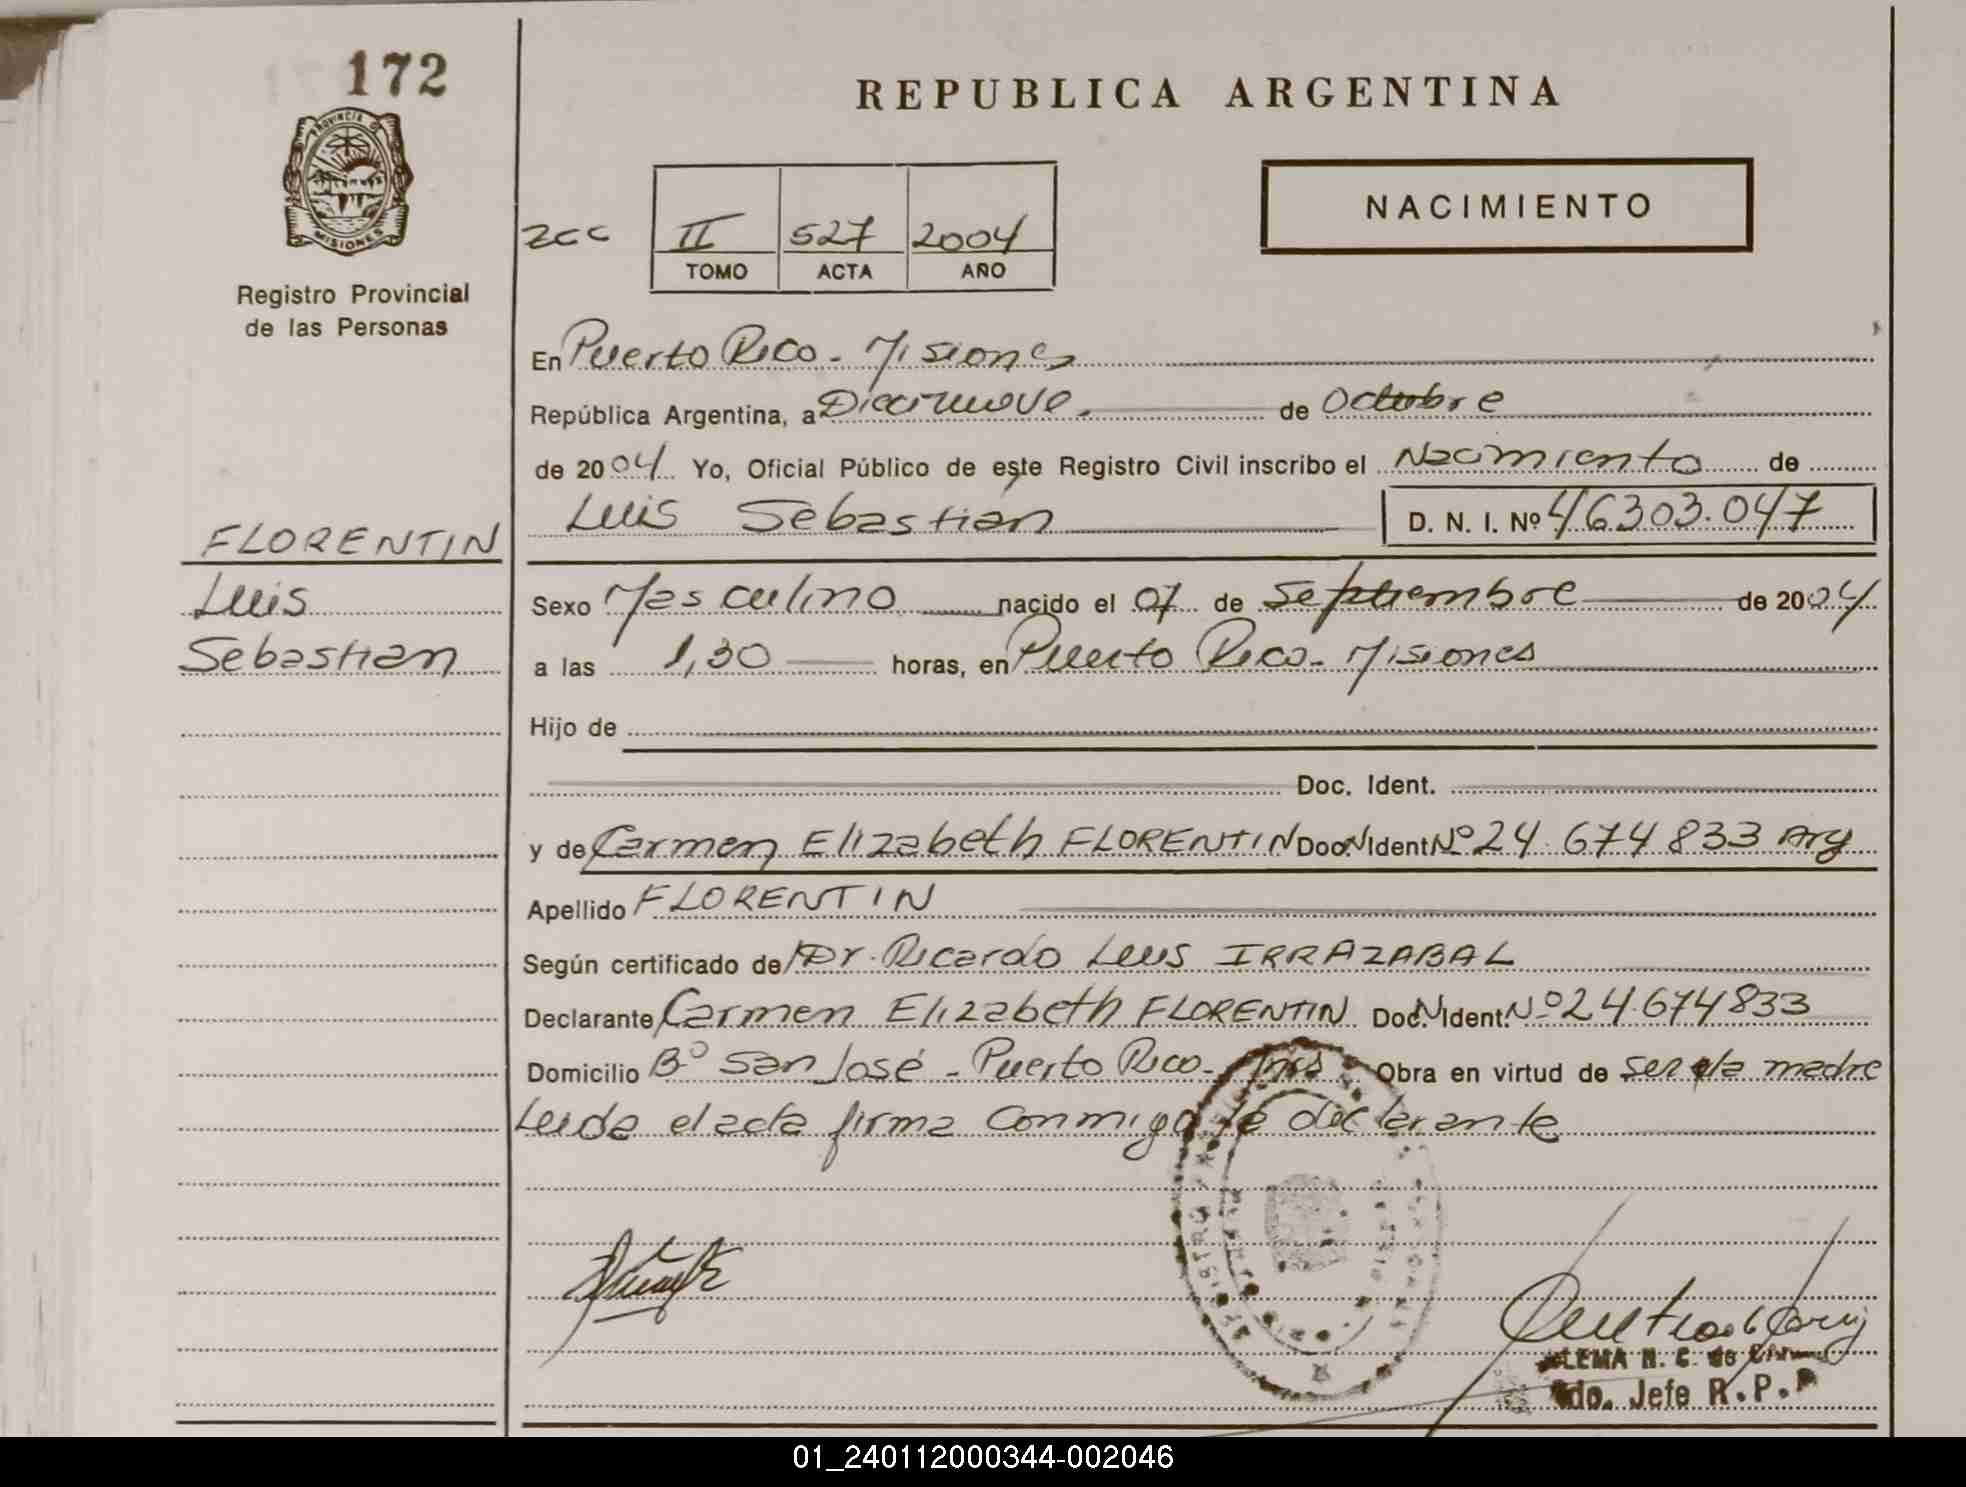 172
REPUBLICA ARGENTINA
PROVINCIA DE
MISIONES
NACIMIENTO
Registro Provincial
de las Personas
zcc II 527 2004
TOMO ACTA AÑO
En Puerto Rico - Misiones
República Argentina, a Diecinueve de Octubre
de 2004 Yo, Oficial Público de este Registro Civil inscribo el Nacimiento de
Luis Sebastian D. N. I. Nº 46303.047
FLORENTIN
Luis
Sebastian
Sexo Masculino nacido el 07 de Septiembre de 2004
a las 1,30 horas, en Puerto Rico - Misiones
Hijo de
Doc. Ident.
y de Carmen Elizabeth FLORENTIN Doc. Ident. Nº 24.674833 Arg
Apellido FLORENTIN
Según certificado de Dr. Ricardo Luis IRRAZABAL
Declarante Carmen Elizabeth FLORENTIN Doc. Ident. Nº 24.674833
Domicilio Bº San José - Puerto Rico - Mns Obra en virtud de ser la madre
Leida el acta firma conmigo la declarante
LEMA N. C. de
Jefe R. P. P
01_240112000344-002046